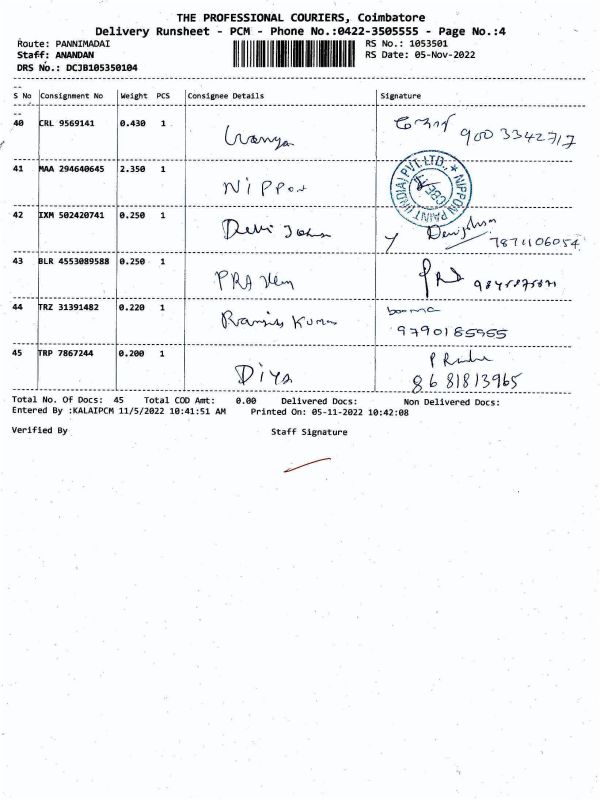 THE PROFESSIONAL COURIERS, Coimbatore
Delivery Runsheet - PCM - Phone No.:0422-3505555 - Page No.:4
Route: PANNIMADAI
RS No.: 1053501
Staff: ANANDAN
RS Date: 05-Nov-2022
DRS No.: DCJB105350104
S No Consignment No Weight PCS Consignee Details Signature
40 CRL 9569141 0.430 1
9003342717
41 MAA 294640645 2.350 1 Nippon
NIPPON PAINT (INDIA) PVT.LTD., CBE
42 IXM 502420741 0.250 1 Devi John
Devijohn
7871106054
43 BLR 4553089588 0.250 1 PRAVeen
44 TRZ 31391482 0.220 1 Ranjith Kumar
9790185955
45 TRP 7867244 0.200 1 Diya
8681813965
Total No. Of Docs: 45 Total COD Amt: 0.00 Delivered Docs: Non Delivered Docs:
Entered By :KALAIPCM 11/5/2022 10:41:51 AM Printed On: 05-11-2022 10:42:08
Verified By Staff Signature